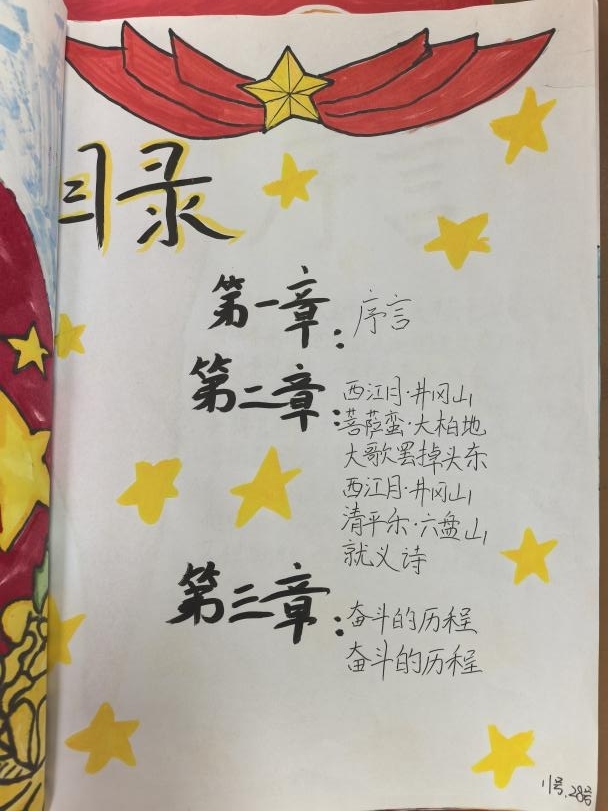 目录
第一章：序言
第二章：西江月·井冈山
菩萨蛮·大柏地
大歌罢掉头东
西江月·井冈山
清平乐·六盘山
就义诗
第三章：奋斗的历程
奋斗的历程
11号.28号